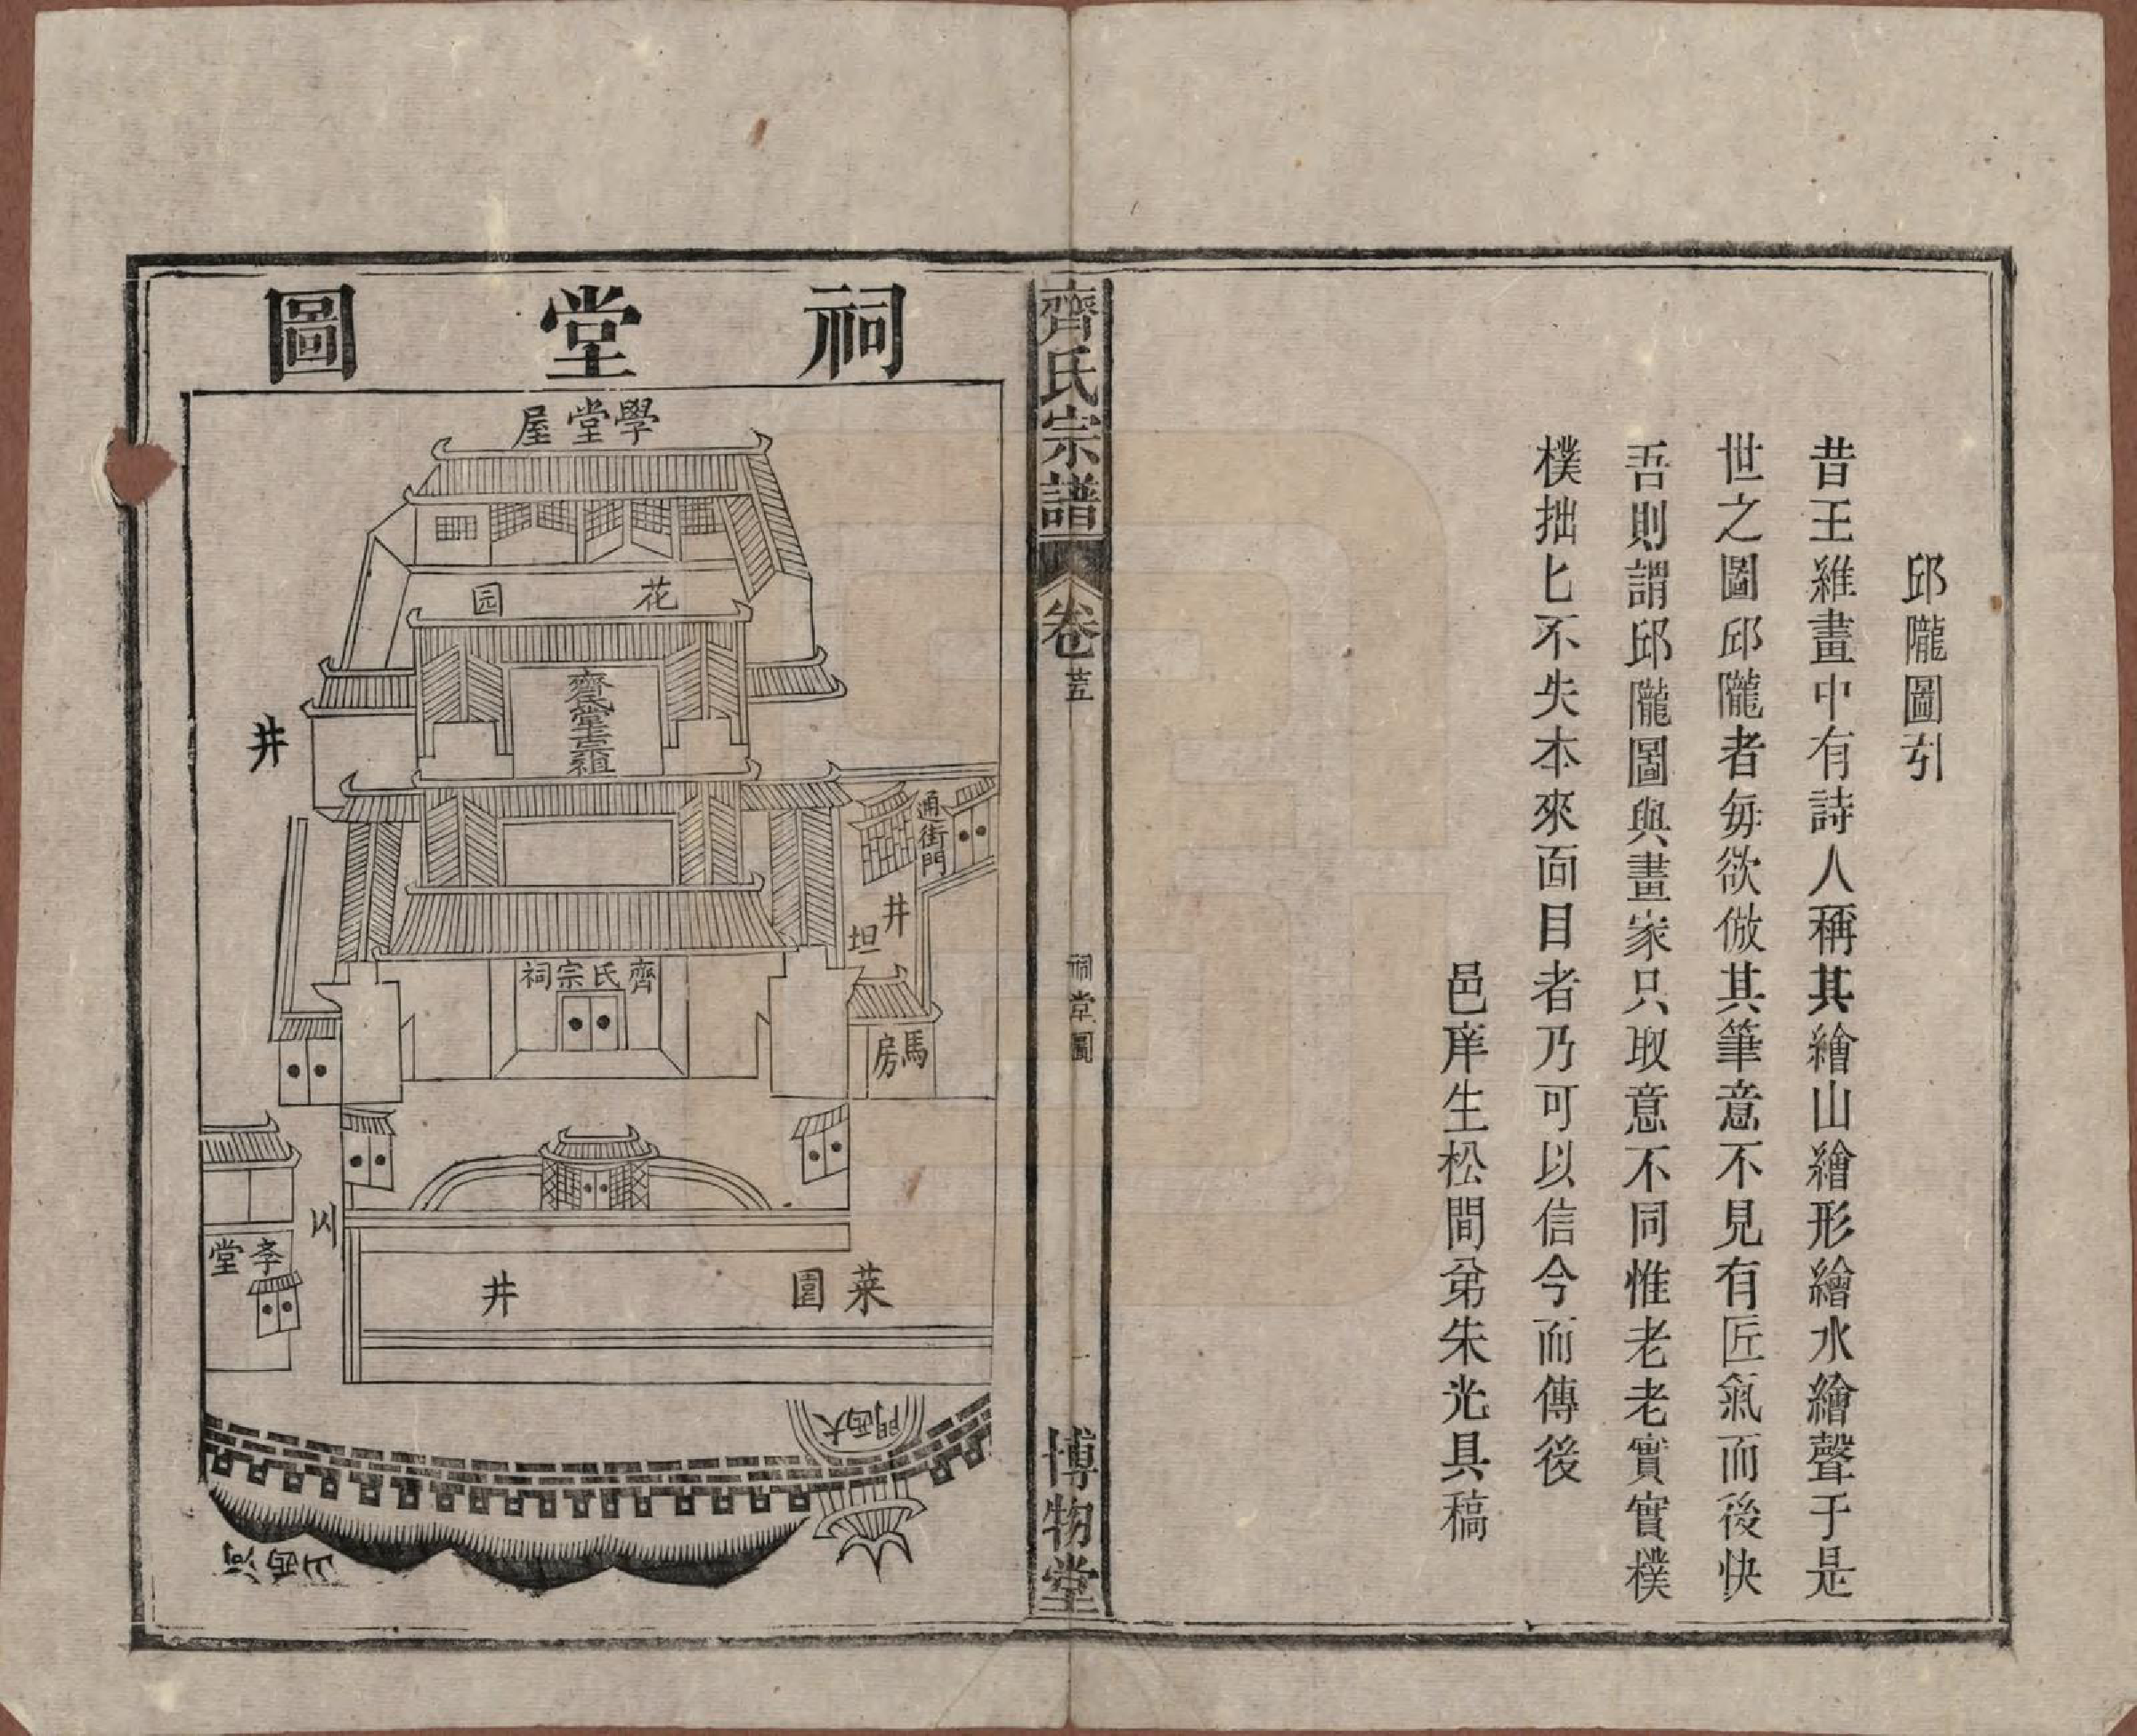 邱隴圖引
昔王維畫中有詩人稱其繪山繪形繪水繪聲于是
世之圖邱隴者每欲倣其筆意不見有匠氣而後快
吾則謂邱隴圖與畫家只取意不同惟老老實實樸
樸拙匕不失本來面目者乃可以信今而傳後
邑庠生松間弟朱光具稿
齊氏宗譜
卷
廿五
祠堂圖
一
博物堂
祠堂圖
學堂屋
花园
井
通街門
井
坦
齊氏宗祠
馬房
斈堂
菜園
井
大西門
河西山